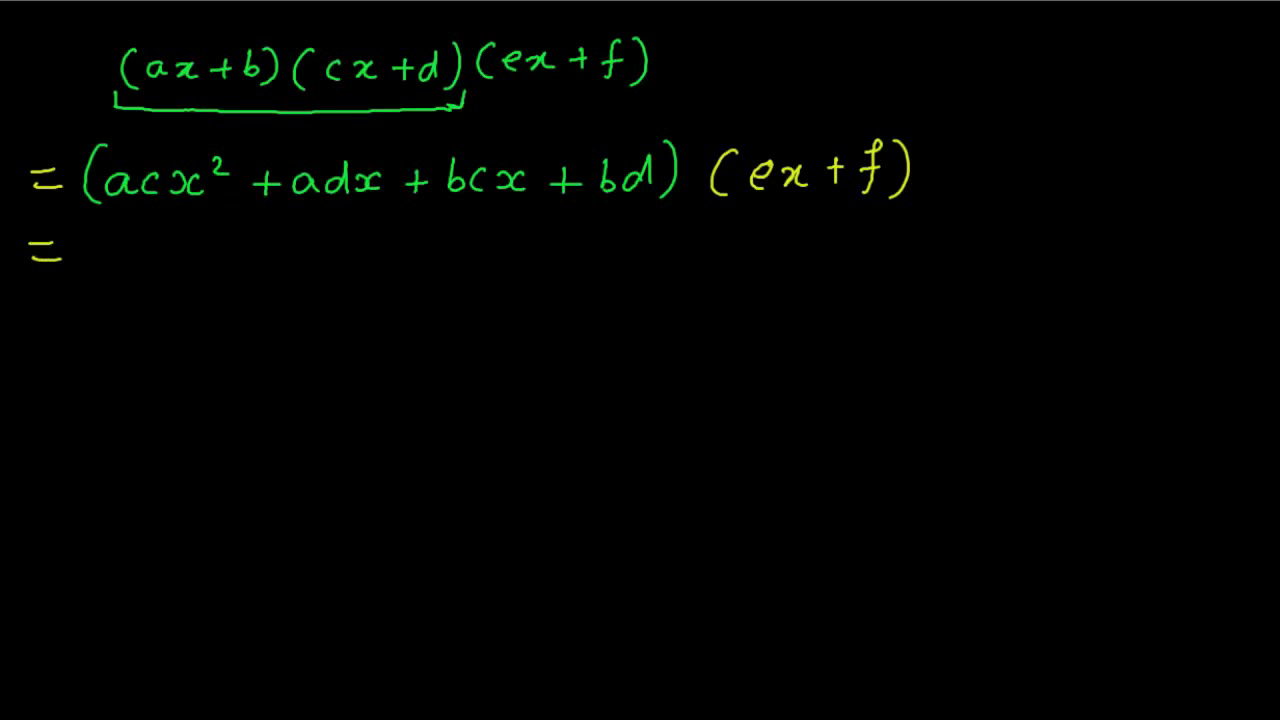 (ax+b)(cx+d)(ex+f)
= (acx² + adx + bcx + bd) (ex+f)
=